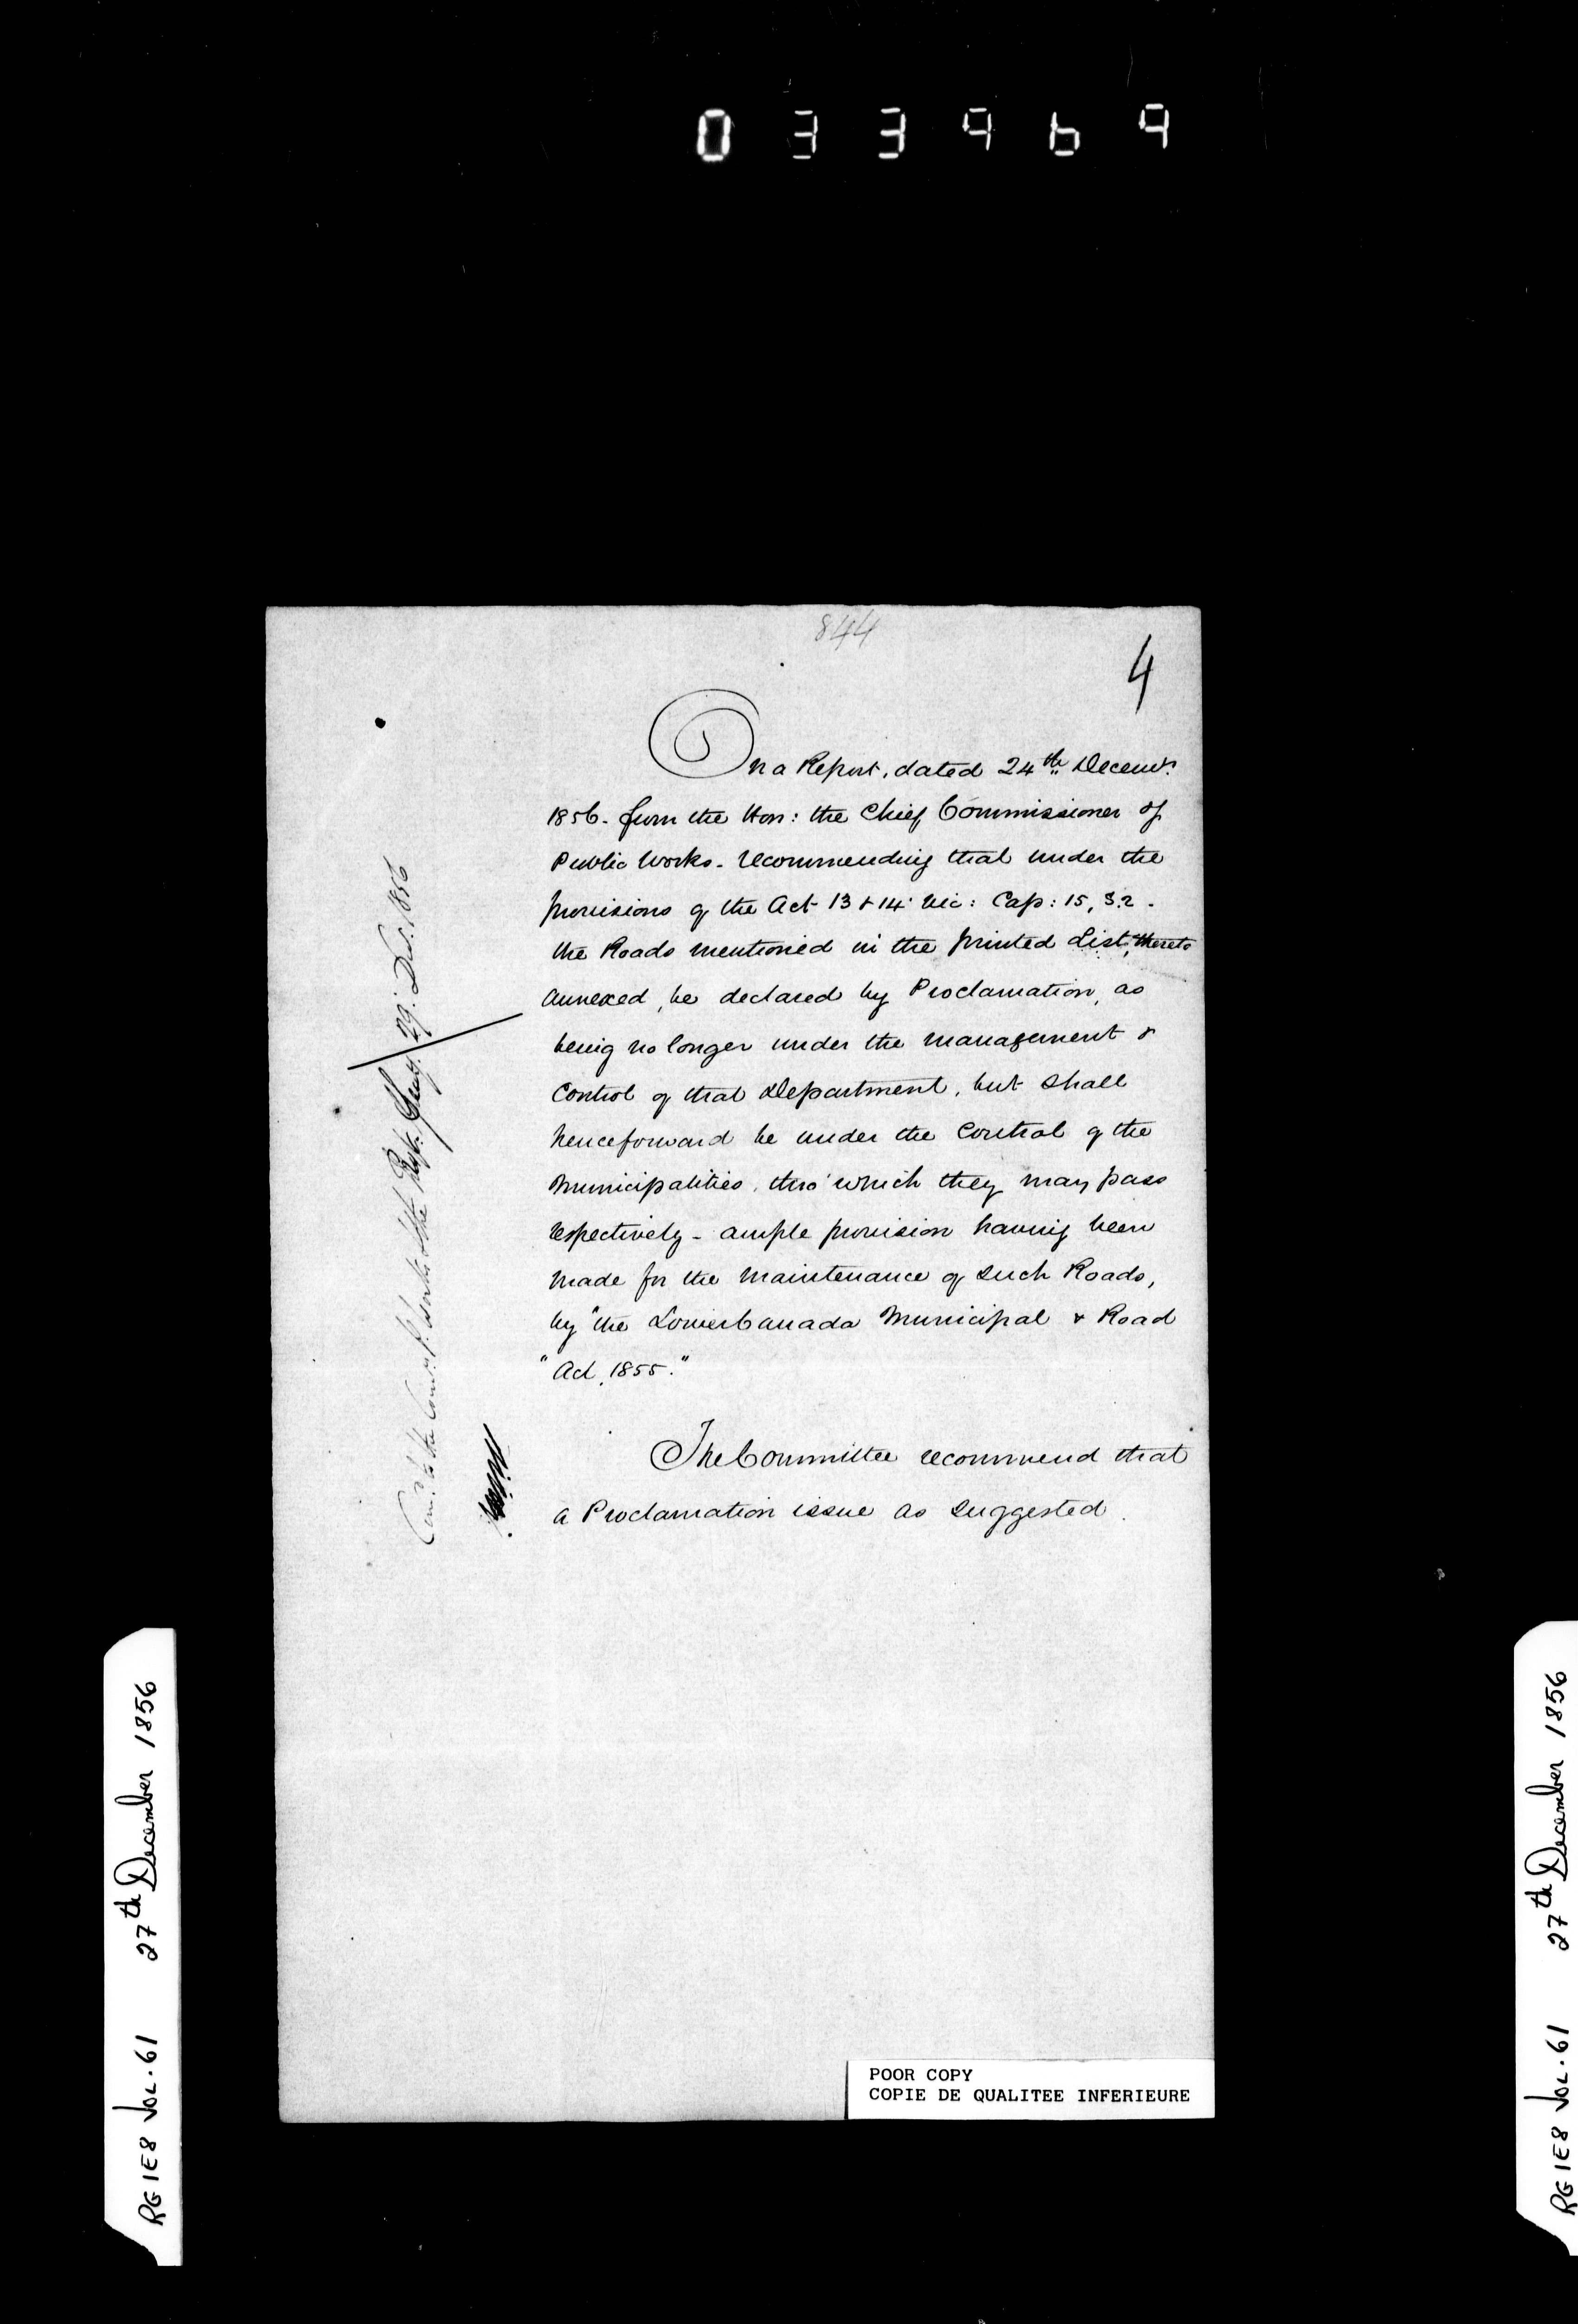 033969
844
4
On a Report, dated 24th Decemr.
1856. from the Hon: the Chief Commissioner of
Public Works. recommending that under the
provisions of the Act 13 & 14 Vic: Cap: 15, S.2.
the Roads mentioned in the printed List, thereto
annexed, be declared by Proclamation, as
being no longer under the management &
Control of that Department, but shall
henceforward be under the Control of the
Municipalities, thro' which they may pass
respectively - ample provision having been
made for the maintenance of such Roads,
by "the Lower Canada Municipal & Road
"Act, 1855."
The Committee recommend that
a Proclamation issue as suggested.
to the Comr. P. Works & the Secy. 29. Dec. 1856
RG1E8 VOL. 61 27th December 1856
RG1E8 VOL. 61 27th December 1856
POOR COPY
COPIE DE QUALITEE INFERIEURE